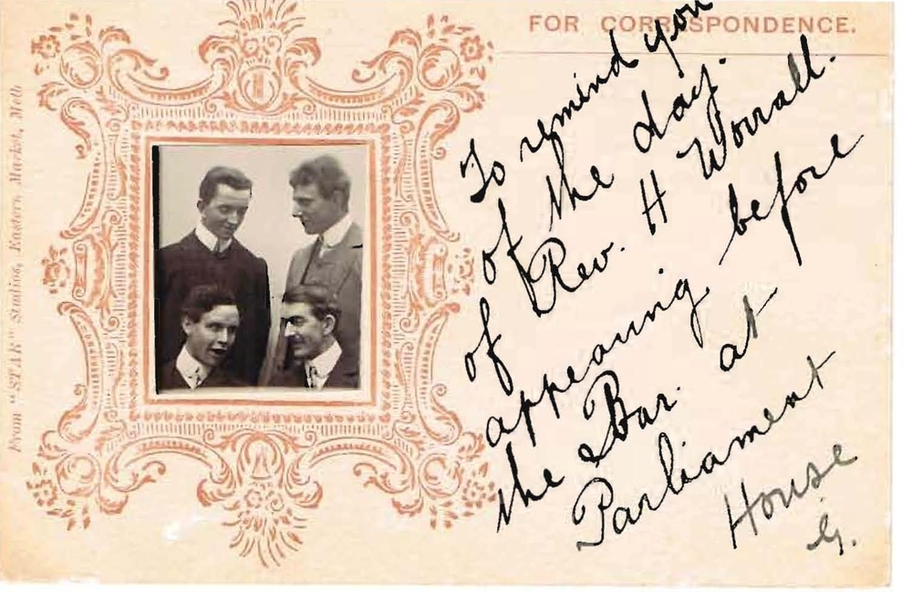 FOR CORRESPONDENCE.
To remind you
of the day.
of Rev. H Worrall.
appearing before
the Bar. at
Parliament
House
G.
From "STAR" Studios, Eastern Market, Melb